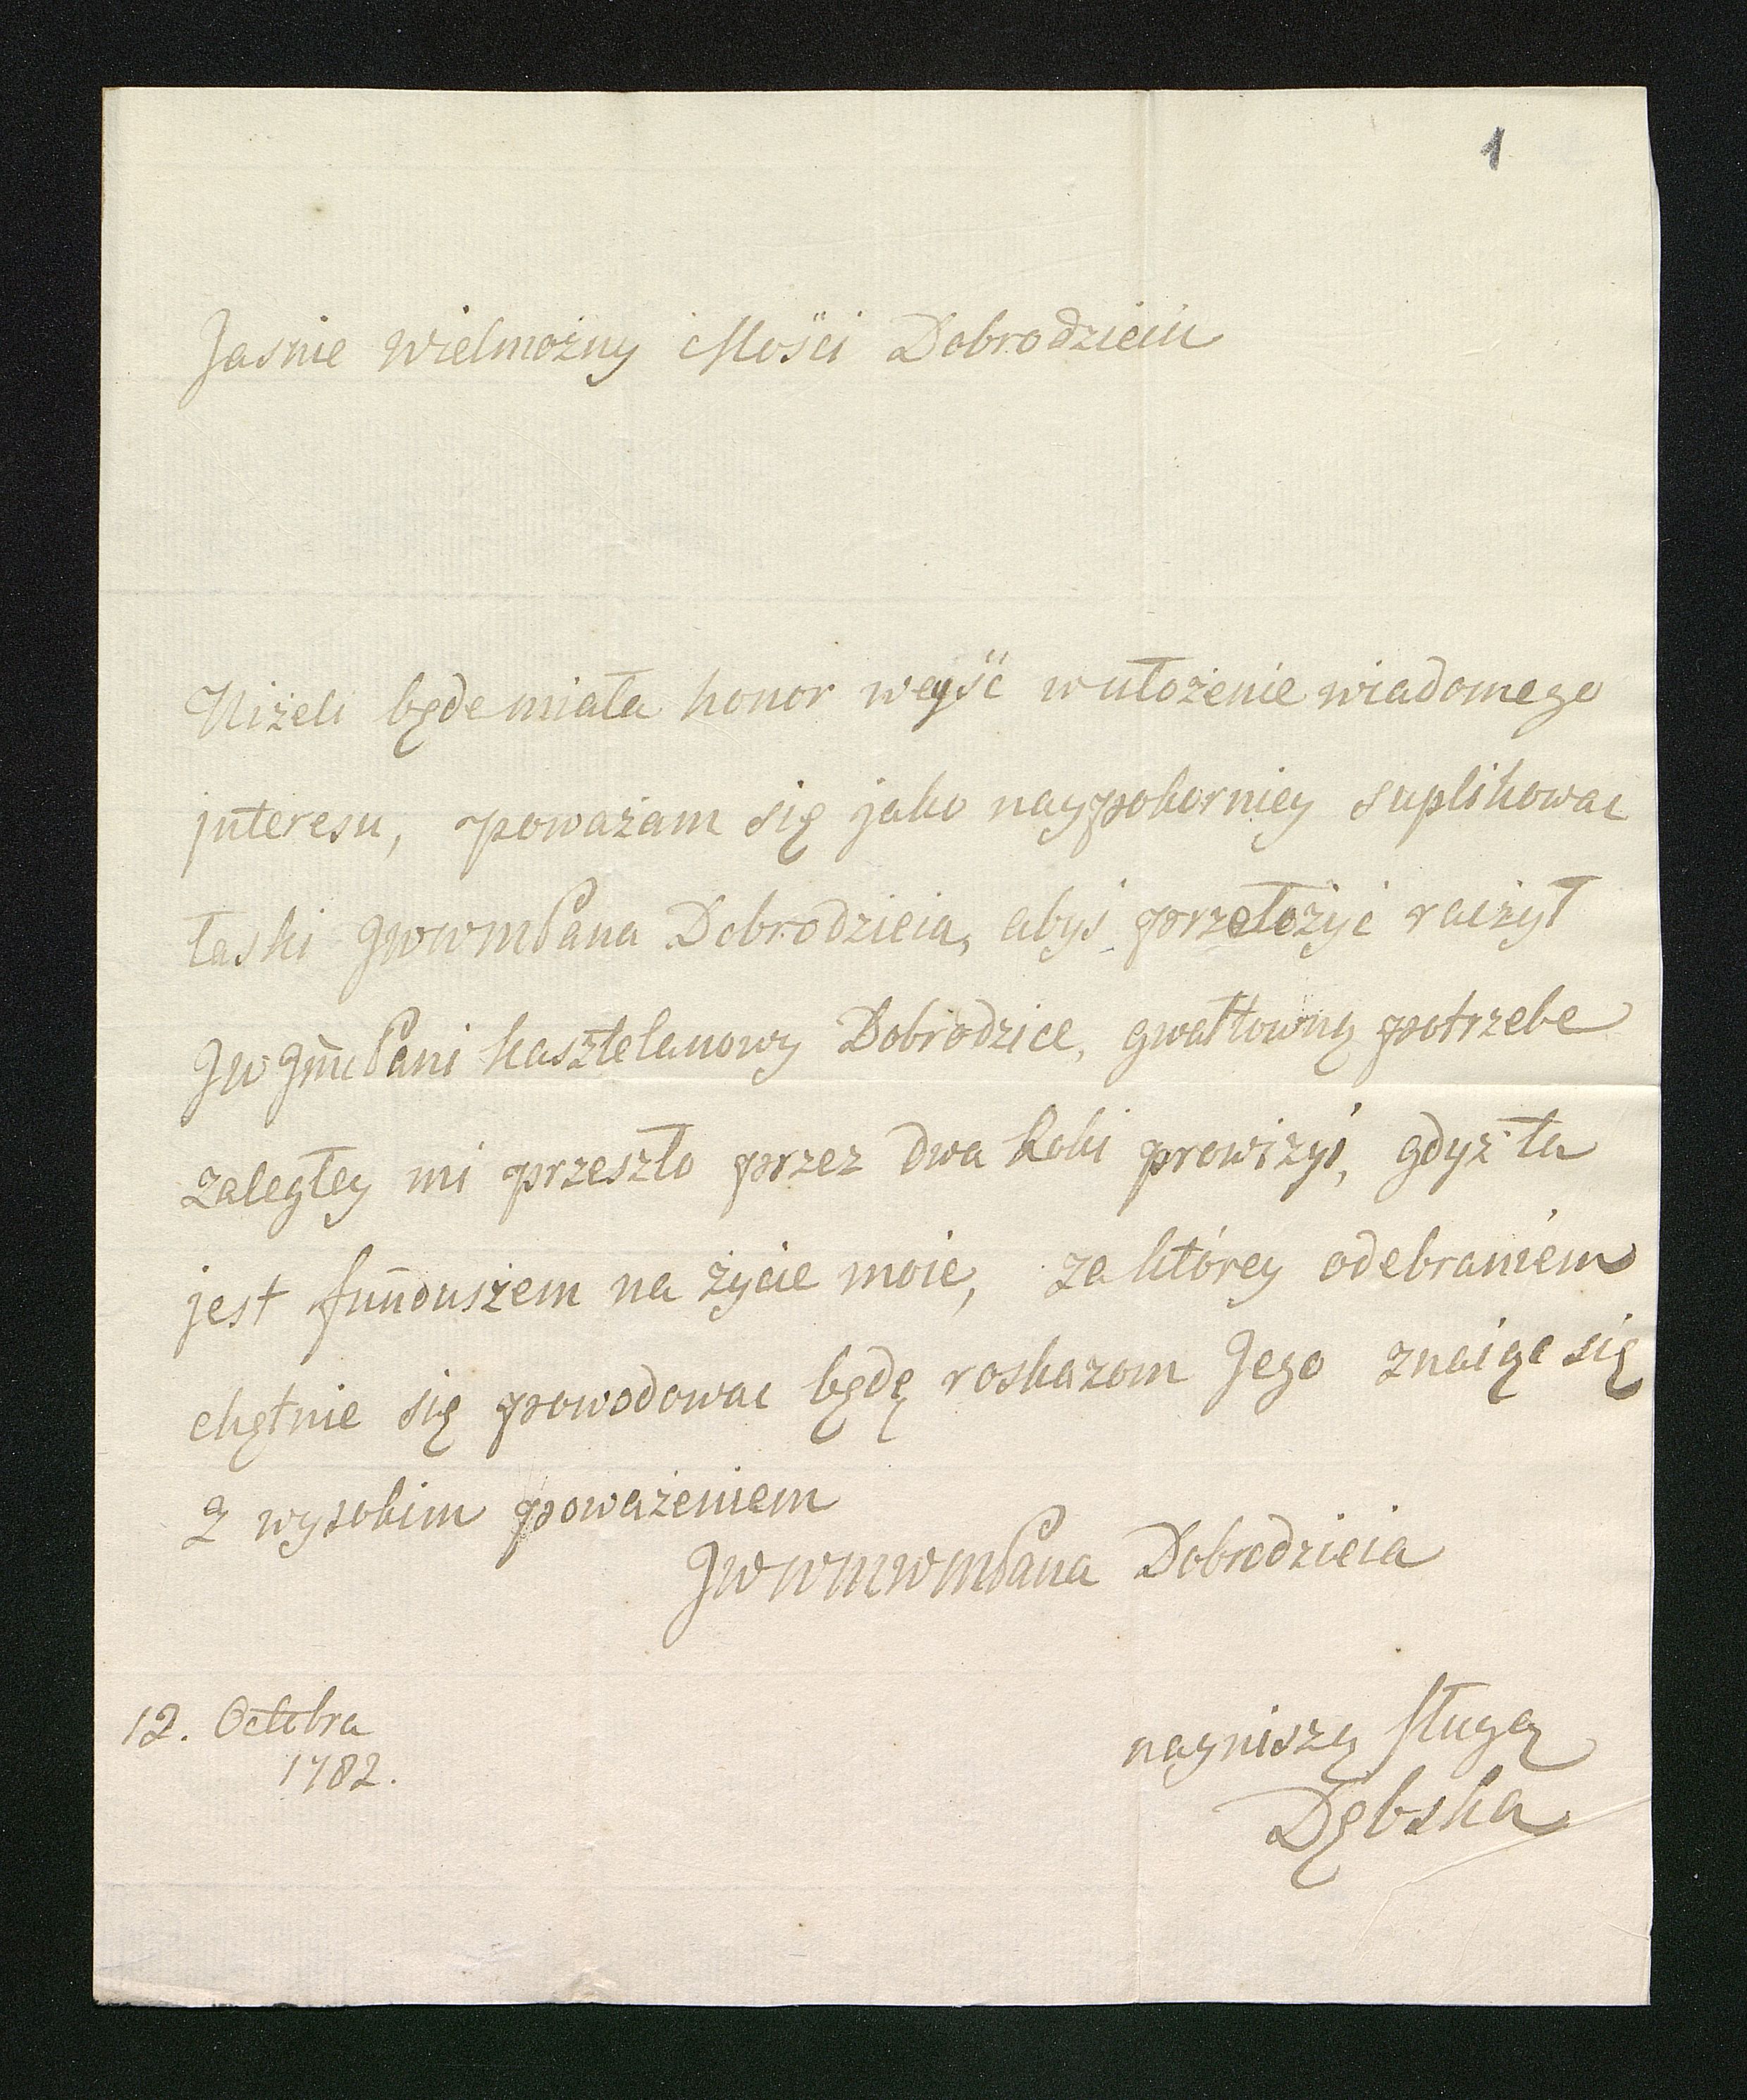 1
Jasnie Wielmożny Mości Dobrodzieiu
Niżeli będe miała honor weyść w ułożenie wiadomego
jnteresu, poważam się jako naypokorniey suplikowac
łaski JWWMPana Dobrodzieia, abyś przełożyć raczył
JW JmcPani kasztelanowy Dobrodzice, gwałtowną potrzebe
zaległey mi przeszło przez dwa Roki prowizyi, gdyż ta
jest funduszem na życie moie, za którey odebraniem
chętnie się powodowac będę roskazom Jego znaiąc się
z wysokim poważeniem
JWWMWMPana Dobrodzieia
12. Octobra
1782.
nayniszą sługą
Dębska